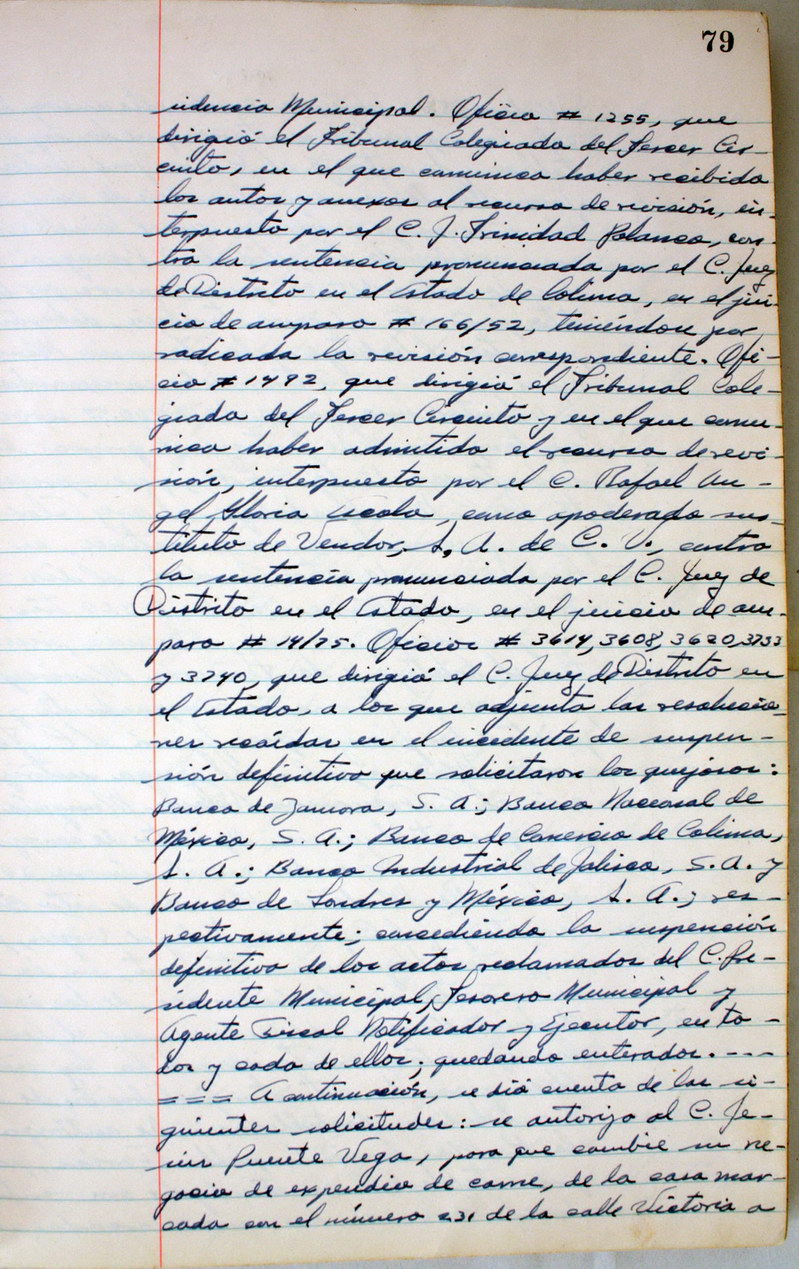 79
sidencia Municipal. Oficio # 1255, que
dirigió el Tribunal Colegiado del Tercer Cir-
cuito, en el que comunica haber recibido
los autos y anexos al recurso de revisión, in-
terpuesto por el C. J. Trinidad Polanco, con-
tra la sentencia pronunciada por el C. Juez
de Distrito en el Estado de Colima, en el jui-
cio de amparo # 166/52, teniéndose por
radicada la revisión correspondiente. Ofi-
cio # 1492, que dirigió el Tribunal Cole-
giado del Tercer Circuito y en el que comu-
nica haber admitido el recurso de revi-
sión, interpuesto por el C. Rafael An-
gel Gloria, como apoderado sus-
tituto de Vendor, S. A. de C. V., contra
la sentencia pronunciada por el C. Juez de
Distrito en el Estado, en el juicio de am-
paro # 14/75. Oficios # 3614, 3608, 3620, 3733
y 3740, que dirigió el C. Juez de Distrito en
el Estado, a los que adjunta las resolucio-
nes recaídas en el incidente de suspen-
sión definitiva que solicitaron los quejosos:
Banco de Zamora, S. A.; Banco Nacional de
México, S. A.; Banco de Comercio de Colima,
S. A.; Banco Industrial de Jalisco, S. A. y
Banco de Londres y México, S. A.; res-
pectivamente; concediendo la suspensión
definitiva de los actos reclamados del C. Pre-
sidente Municipal, Tesorero Municipal y
Agente Fiscal Notificador y Ejecutor, en to-
dos y cada de ellos; quedando enterados. - - -
= = = A continuación, se dió cuenta de las si-
guientes solicitudes: se autoriza al C. Je-
sús Puente Vega, para que cambie su ne-
gocio de expendio de carne, de la casa mar-
cada con el número 231 de la calle Victoria a